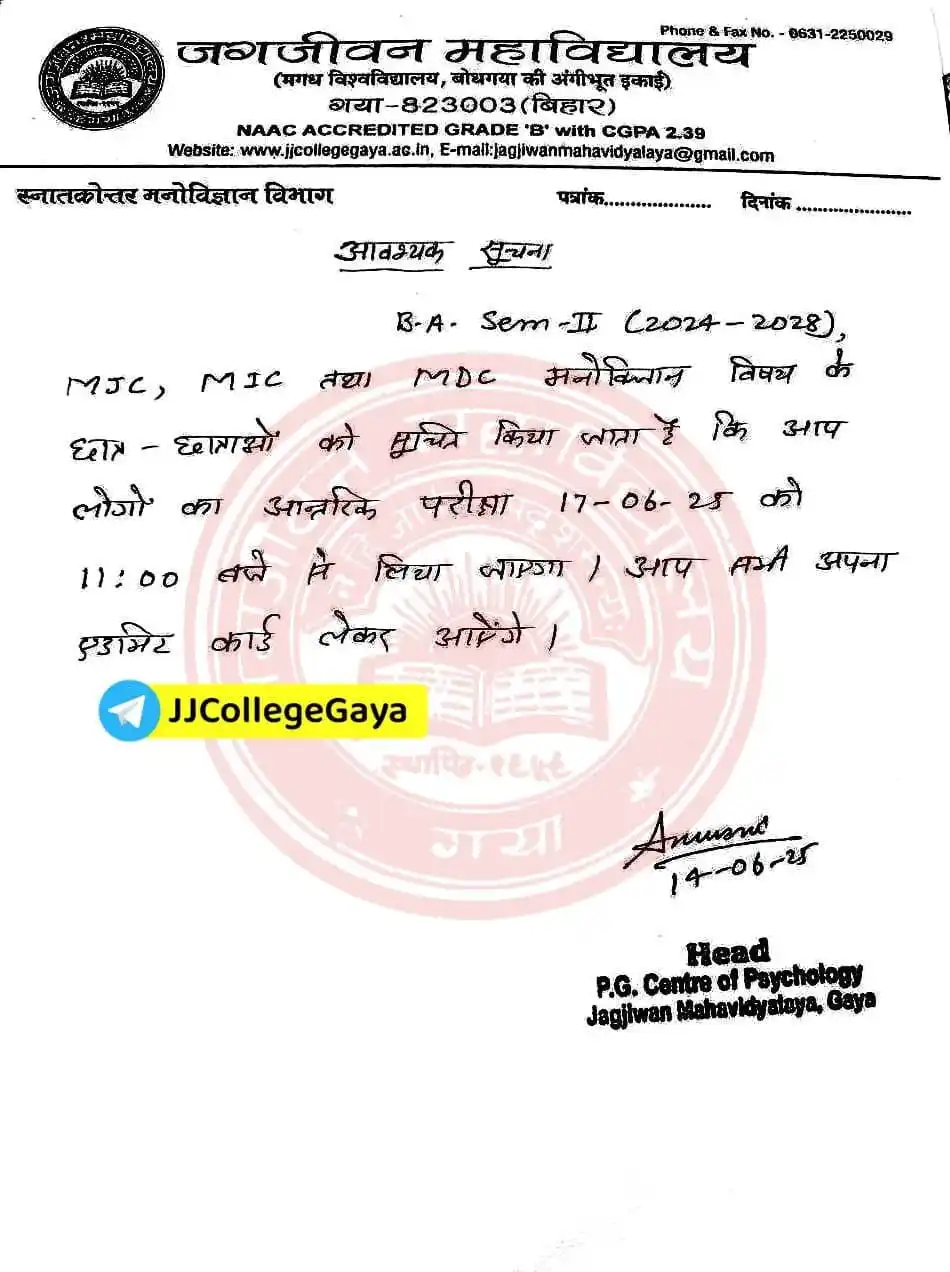 Phone & Fax No. - 0631-2250029
जगजीवन महाविद्यालय
(मगध विश्वविद्यालय, बोधगया की अंगीभूत इकाई)
गया-823003(बिहार)
NAAC ACCREDITED GRADE 'B' with CGPA 2.39
Website: www.jjcollegegaya.ac.in, E-mail:jagjiwanmahavidyalaya@gmail.com
स्नातकोत्तर मनोविज्ञान विभाग
पत्रांक.................... दिनांक ......................
आवश्यक सूचना
B.A. Sem-II (2024-2028),
MJC, MIC तथा MDC मनोविज्ञान विषय के
छात्र - छात्राओं को सुचित किया जाता है कि आप
लोगों का आन्तरिक परीक्षा 17-06-25 को
11:00 बजे से लिया जाएगा। आप सभी अपना
एडमिट कार्ड लेकर आयेंगे।
JJCollegeGaya
स्थापित-१९५९
गया
14-06-25
Head
P.G. Centre of Psychology
Jagjiwan Mahavidyalaya, Gaya